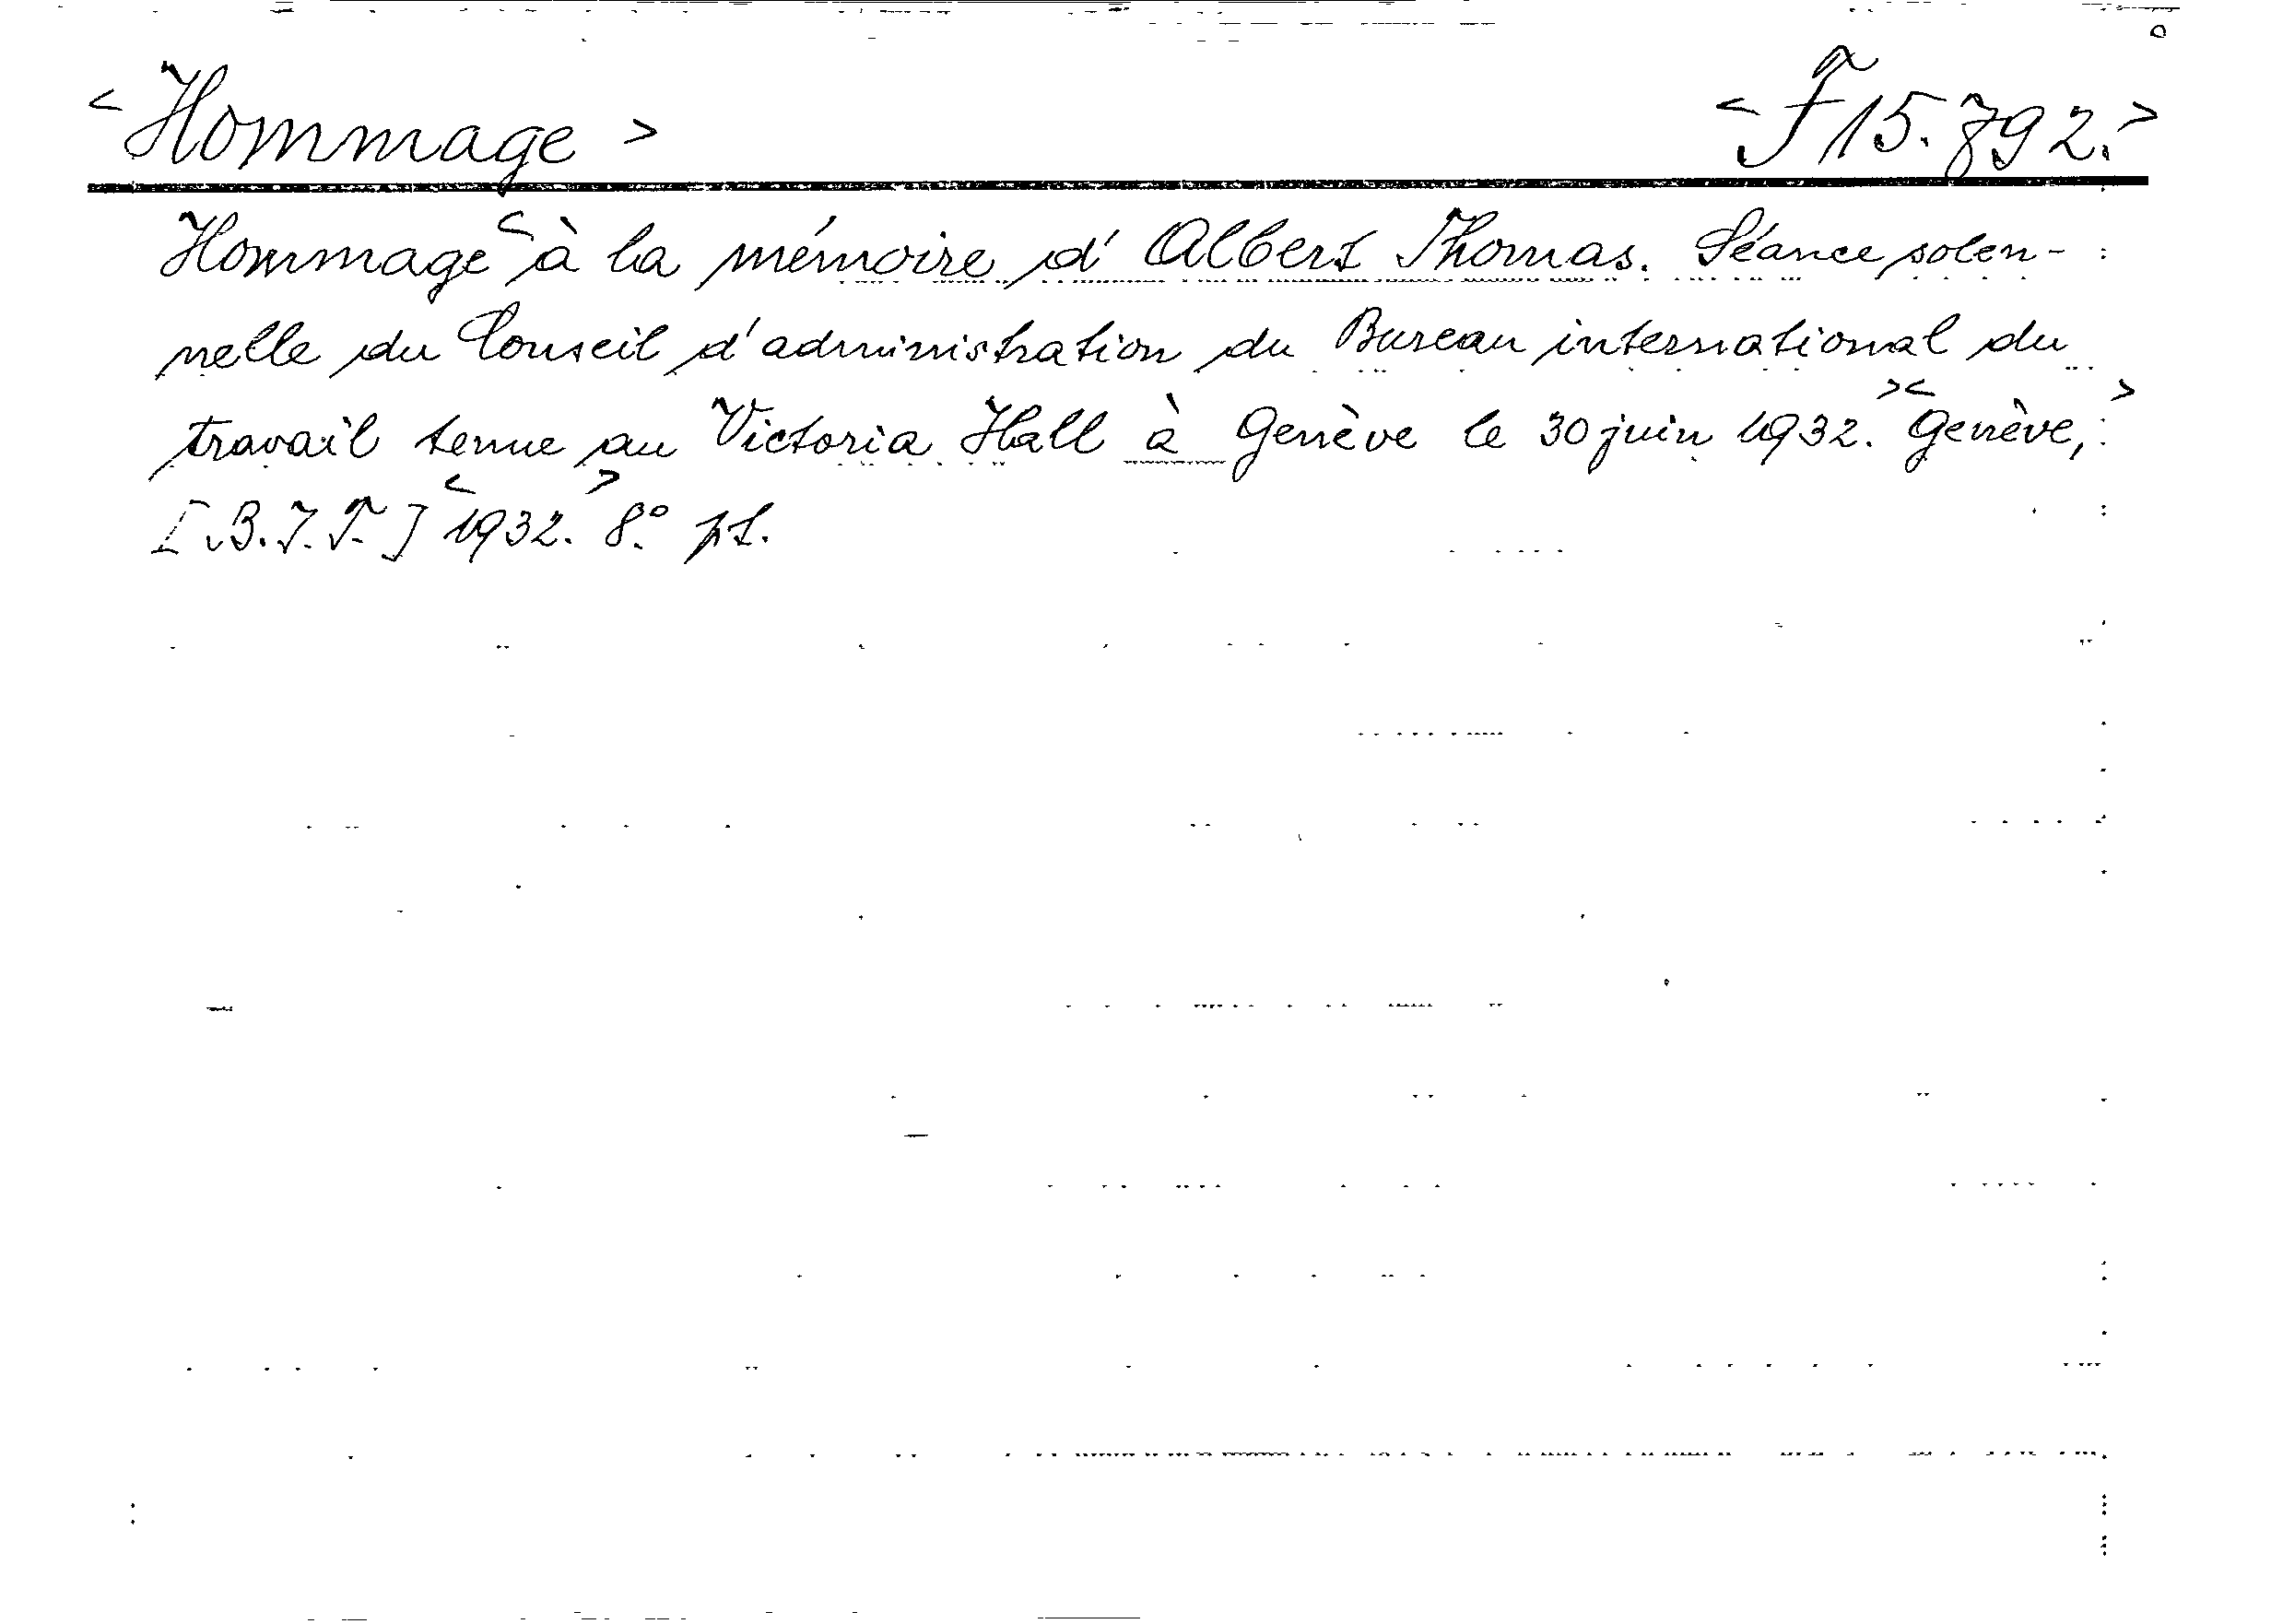 < Hommage > < F 15.792. >
Hommage < à la mémoire d'Albert Thomas. Séance solen-
nelle du Conseil d'administration du Bureau international du
travail tenue au Victoria Hall à Genève le 30 juin 1932. >< Genève, >
[B.I.T.] < 1932. > 8° pt.